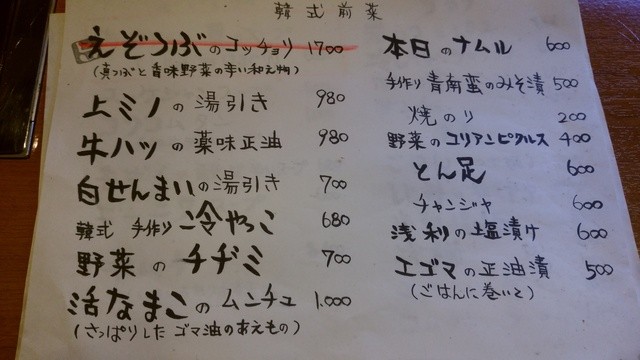 韓式前菜
えぞつぶのコッチョリ 1700
(真つぶと香味野菜の辛い和え物)
上ミノの湯引き 980
牛ハツの薬味正油 980
白せんまいの湯引き 700
韓式 手作り 冷やっこ 680
野菜のチヂミ 700
活なまこのムンチュ 1.000
(さっぱりした ゴマ油のあえもの)
本日のナムル 600
手作り 青南蛮のみそ漬 500
焼のり 200
野菜のコリアンピクルス 400
とん足 600
チャンジャ 600
浅利の塩漬け 600
エゴマの正油漬 500
(ごはんに巻いて)